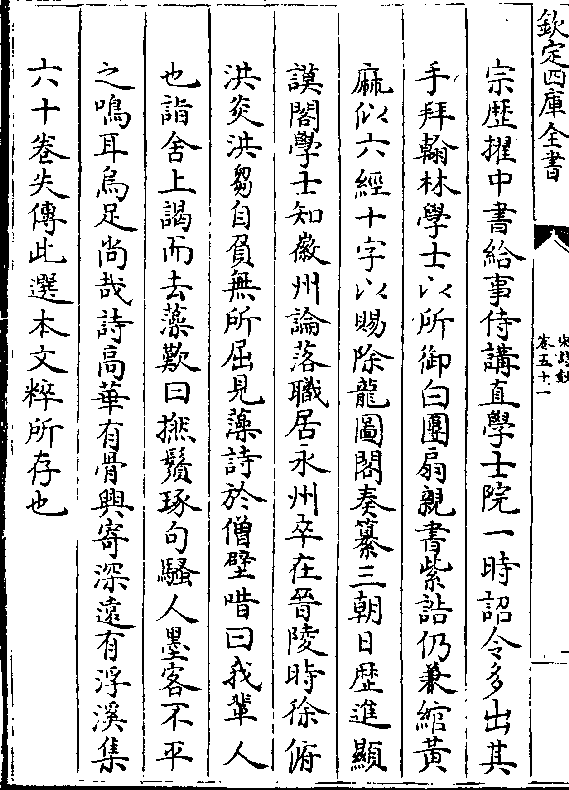 欽定四庫全書
卷五十一
宗歴擢中書給事侍講直學士院一時詔令多出其
手拜翰林學士以所御白團扇親書紫誥仍兼綰黄
麻似六經十字以賜除龍圖閣奏纂三朝日歴進顯
謨閣學士知徽州論落職居永州卒在晉陵時徐俯
洪炎洪芻自負無所屈見藻詩於僧壁喈曰我輩人
也詣舍上謁而去藻歎曰撚鬚琢句騷人墨客不平
之鳴耳烏足尚哉詩高華有骨興寄深遠有浮溪集
六十卷失傳此選本文粹所存也